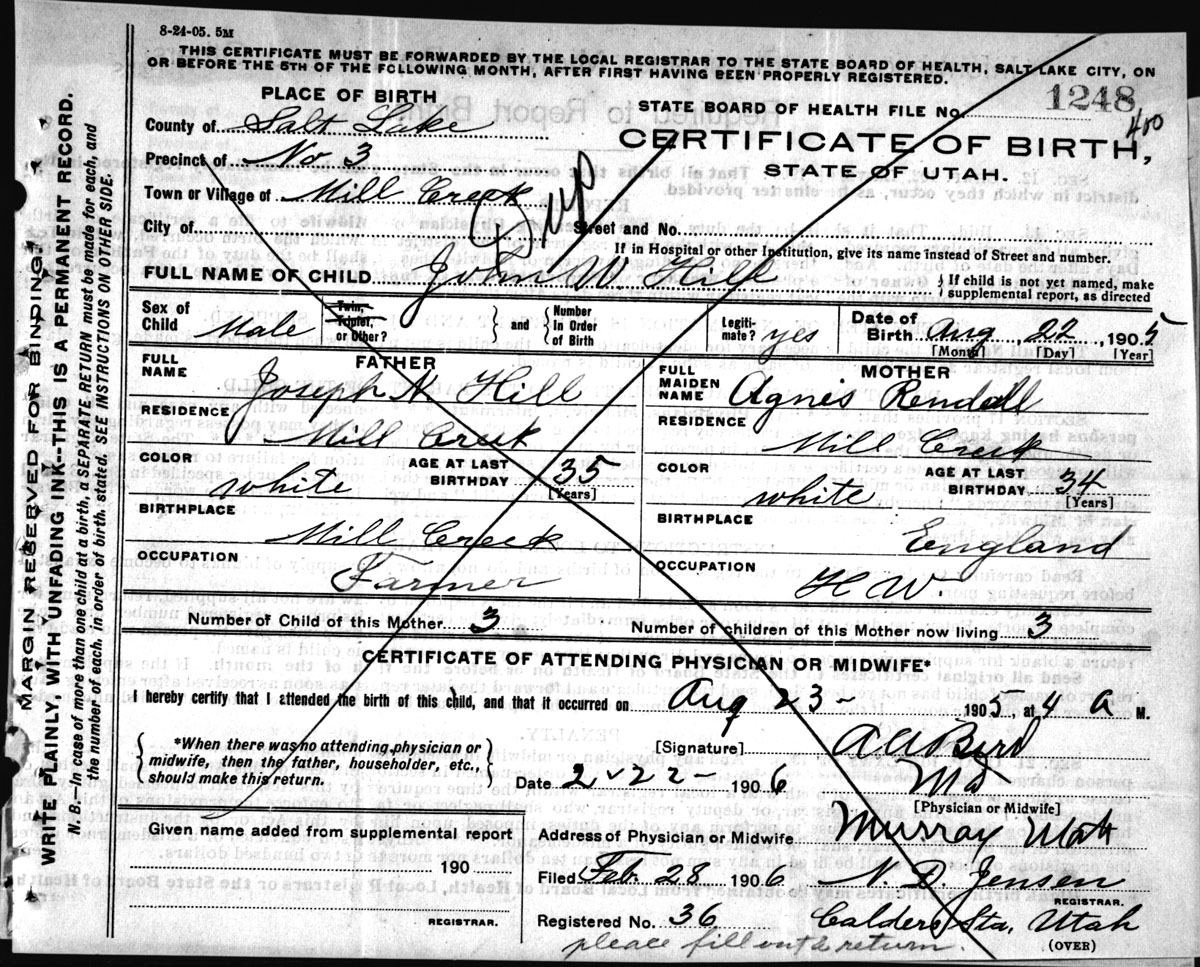 8-24-05. 5M
THIS CERTIFICATE MUST BE FORWARDED BY THE LOCAL REGISTRAR TO THE STATE BOARD OF HEALTH, SALT LAKE CITY, ON
OR BEFORE THE 5TH OF THE FOLLOWING MONTH, AFTER FIRST HAVING BEEN PROPERLY REGISTERED.
MARGIN RESERVED FOR BINDING.
WRITE PLAINLY, WITH UNFADING INK--THIS IS A PERMANENT RECORD.
N. B.—In case of more than one child at a birth, a SEPARATE RETURN must be made for each, and
the number of each, in order of birth, stated. SEE INSTRUCTIONS ON OTHER SIDE.
PLACE OF BIRTH
County of Salt Lake
Precinct of No 3
Town or Village of Mill Creek
City of
STATE BOARD OF HEALTH FILE No. 1248
400
CERTIFICATE OF BIRTH,
STATE OF UTAH.
Dup
Street and No.
If in Hospital or other Institution, give its name instead of Street and number.
FULL NAME OF CHILD John W Hill
If child is not yet named, make
supplemental report, as directed
Sex of Child Male
Twin, Triplet, or Other?
and
Number In Order of Birth
Legiti-mate? yes
Date of Birth Aug 22, 1905
[Month] [Day] [Year]
FATHER
FULL NAME Joseph N Hill
RESIDENCE Mill Creek
COLOR white
AGE AT LAST BIRTHDAY 35
[Years]
BIRTHPLACE Mill Creek
OCCUPATION Farmer
MOTHER
FULL MAIDEN NAME Agnes Rendall
RESIDENCE Mill Creek
COLOR white
AGE AT LAST BIRTHDAY 34
[Years]
BIRTHPLACE England
OCCUPATION H W
Number of Child of this Mother 3
Number of children of this Mother now living 3
CERTIFICATE OF ATTENDING PHYSICIAN OR MIDWIFE*
I hereby certify that I attended the birth of this child, and that it occurred on Aug 23- 1905, at 4 a M.
*When there was no attending physician or
midwife, then the father, householder, etc.,
should make this return.
[Signature] A A Bird
Date 2-22- 1906 MD
[Physician or Midwife]
Given name added from supplemental report
190
REGISTRAR.
Address of Physician or Midwife Murray Utah
Filed Feb. 28 1906 N. D. Jensen
REGISTRAR.
Registered No. 36 Calders Sta, Utah
(OVER)
please fill out & return.